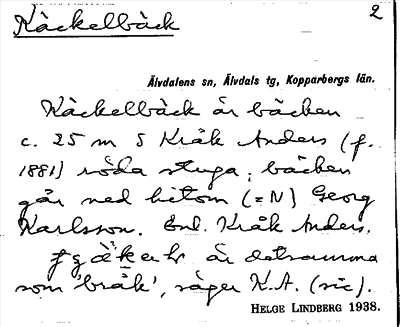 Käckelbäck
2
Älvdalens sn, Älvdals tg, Kopparbergs län.
Käckelbäck är bäcken
c. 25 m S Kråk Anders (f.
1881) röda stuga; bäcken
går ned hitom (= N) Georg
Karlsson. Enl. Kråk Anders.
är detsamma
som 'bråk', säger K.A. (sic).
HELGE LINDBERG 1938.